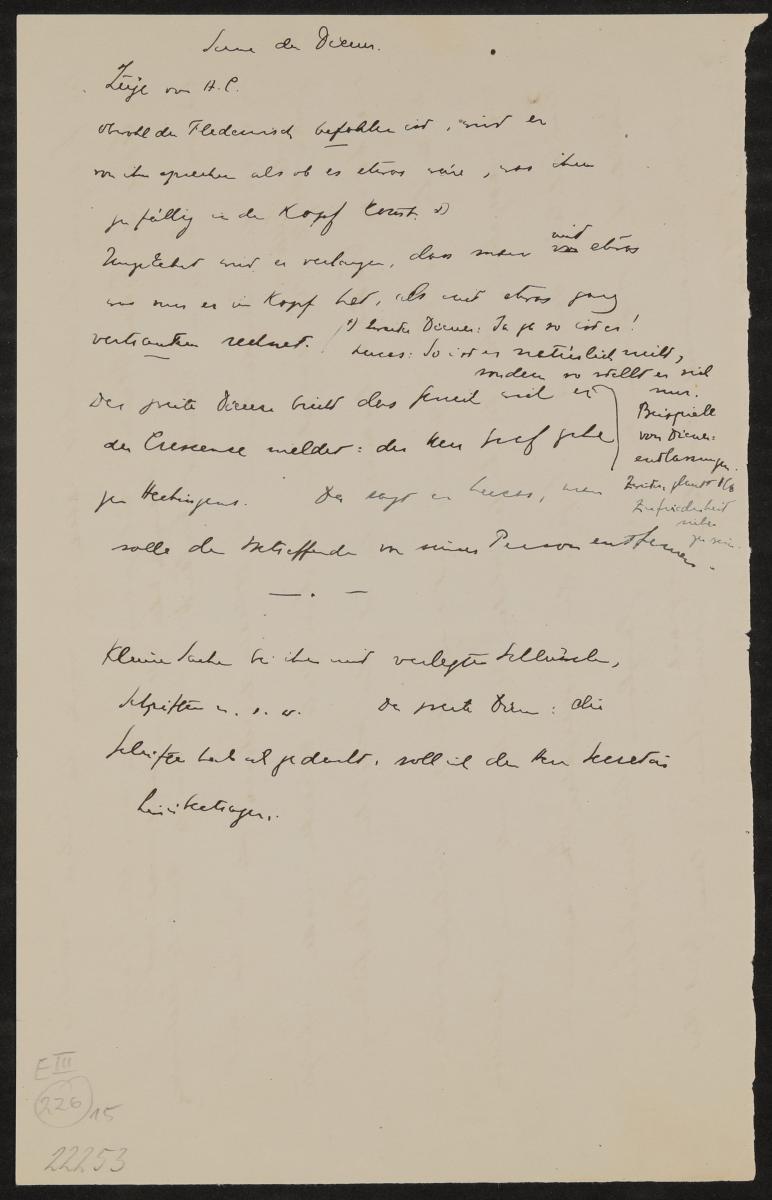 Scene der Diener.
Züge von H. C.
obwohl der Fledermisch befohlen ist, wird er
von ihm sprechen als ob es etwas wäre, was ihm
zufällig in den Kopf kommt. 1)
Umgekehrt wird er verlangen, dass man mit etwas
was nur er im Kopf hat, als mit etwas ganz
vertrautem rechnet.
1) zweiter Diener: Ja ja so ist er!
Lucas: So ist er natürlich nicht,
sondern so stellt er sich
nur.
Der zweite Diener bricht das Genick weil er
der Crescence meldet: der Herr Graf gehe
zu Hechingens. Da sagt er Lucas, man
solle den Betreffenden von seiner Person entfernen.
Beispiele
von Diener-
entlassungen.
Zweiter glaubt
Zufriedenheit
sicher
zu sein.
Kleine Sachen bei ihm mit verlegten Schlüsseln,
Schriften u. s. w. Der zweite Diener: die
Schriften hab ich gedacht, soll ich dem Herrn Secretär
hinübertragen.
E III
226 15
22253